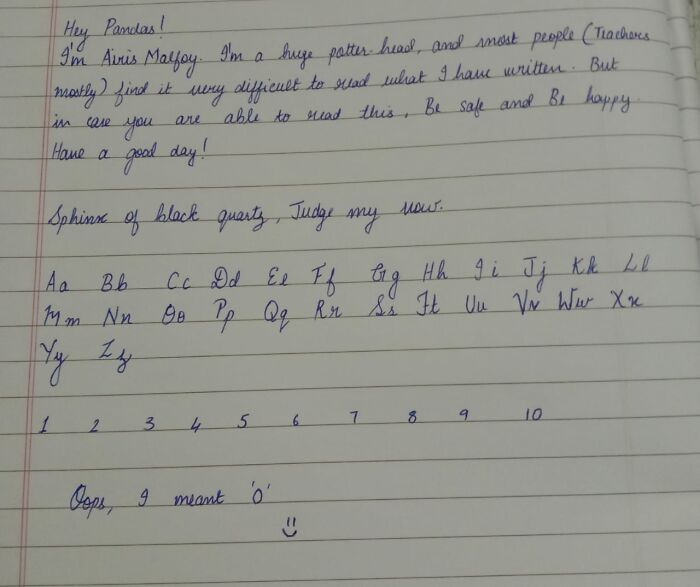 Hey Pandas!
I'm Airis Malfoy. I'm a huge potter-head, and most people (Teachers
mostly) find it very difficult to read what I have written. But
in case you are able to read this, Be safe and Be happy.
Have a good day!
Sphinx of black quartz, Judge my vow.
Aa Bb Cc Dd Ee Ff Gg Hh Ii Jj Kk Ll
Mm Nn Oo Pp Qq Rr Ss Tt Uu Vv Ww Xx
Yy Zz
1 2 3 4 5 6 7 8 9 10
Oops, I meant '0'